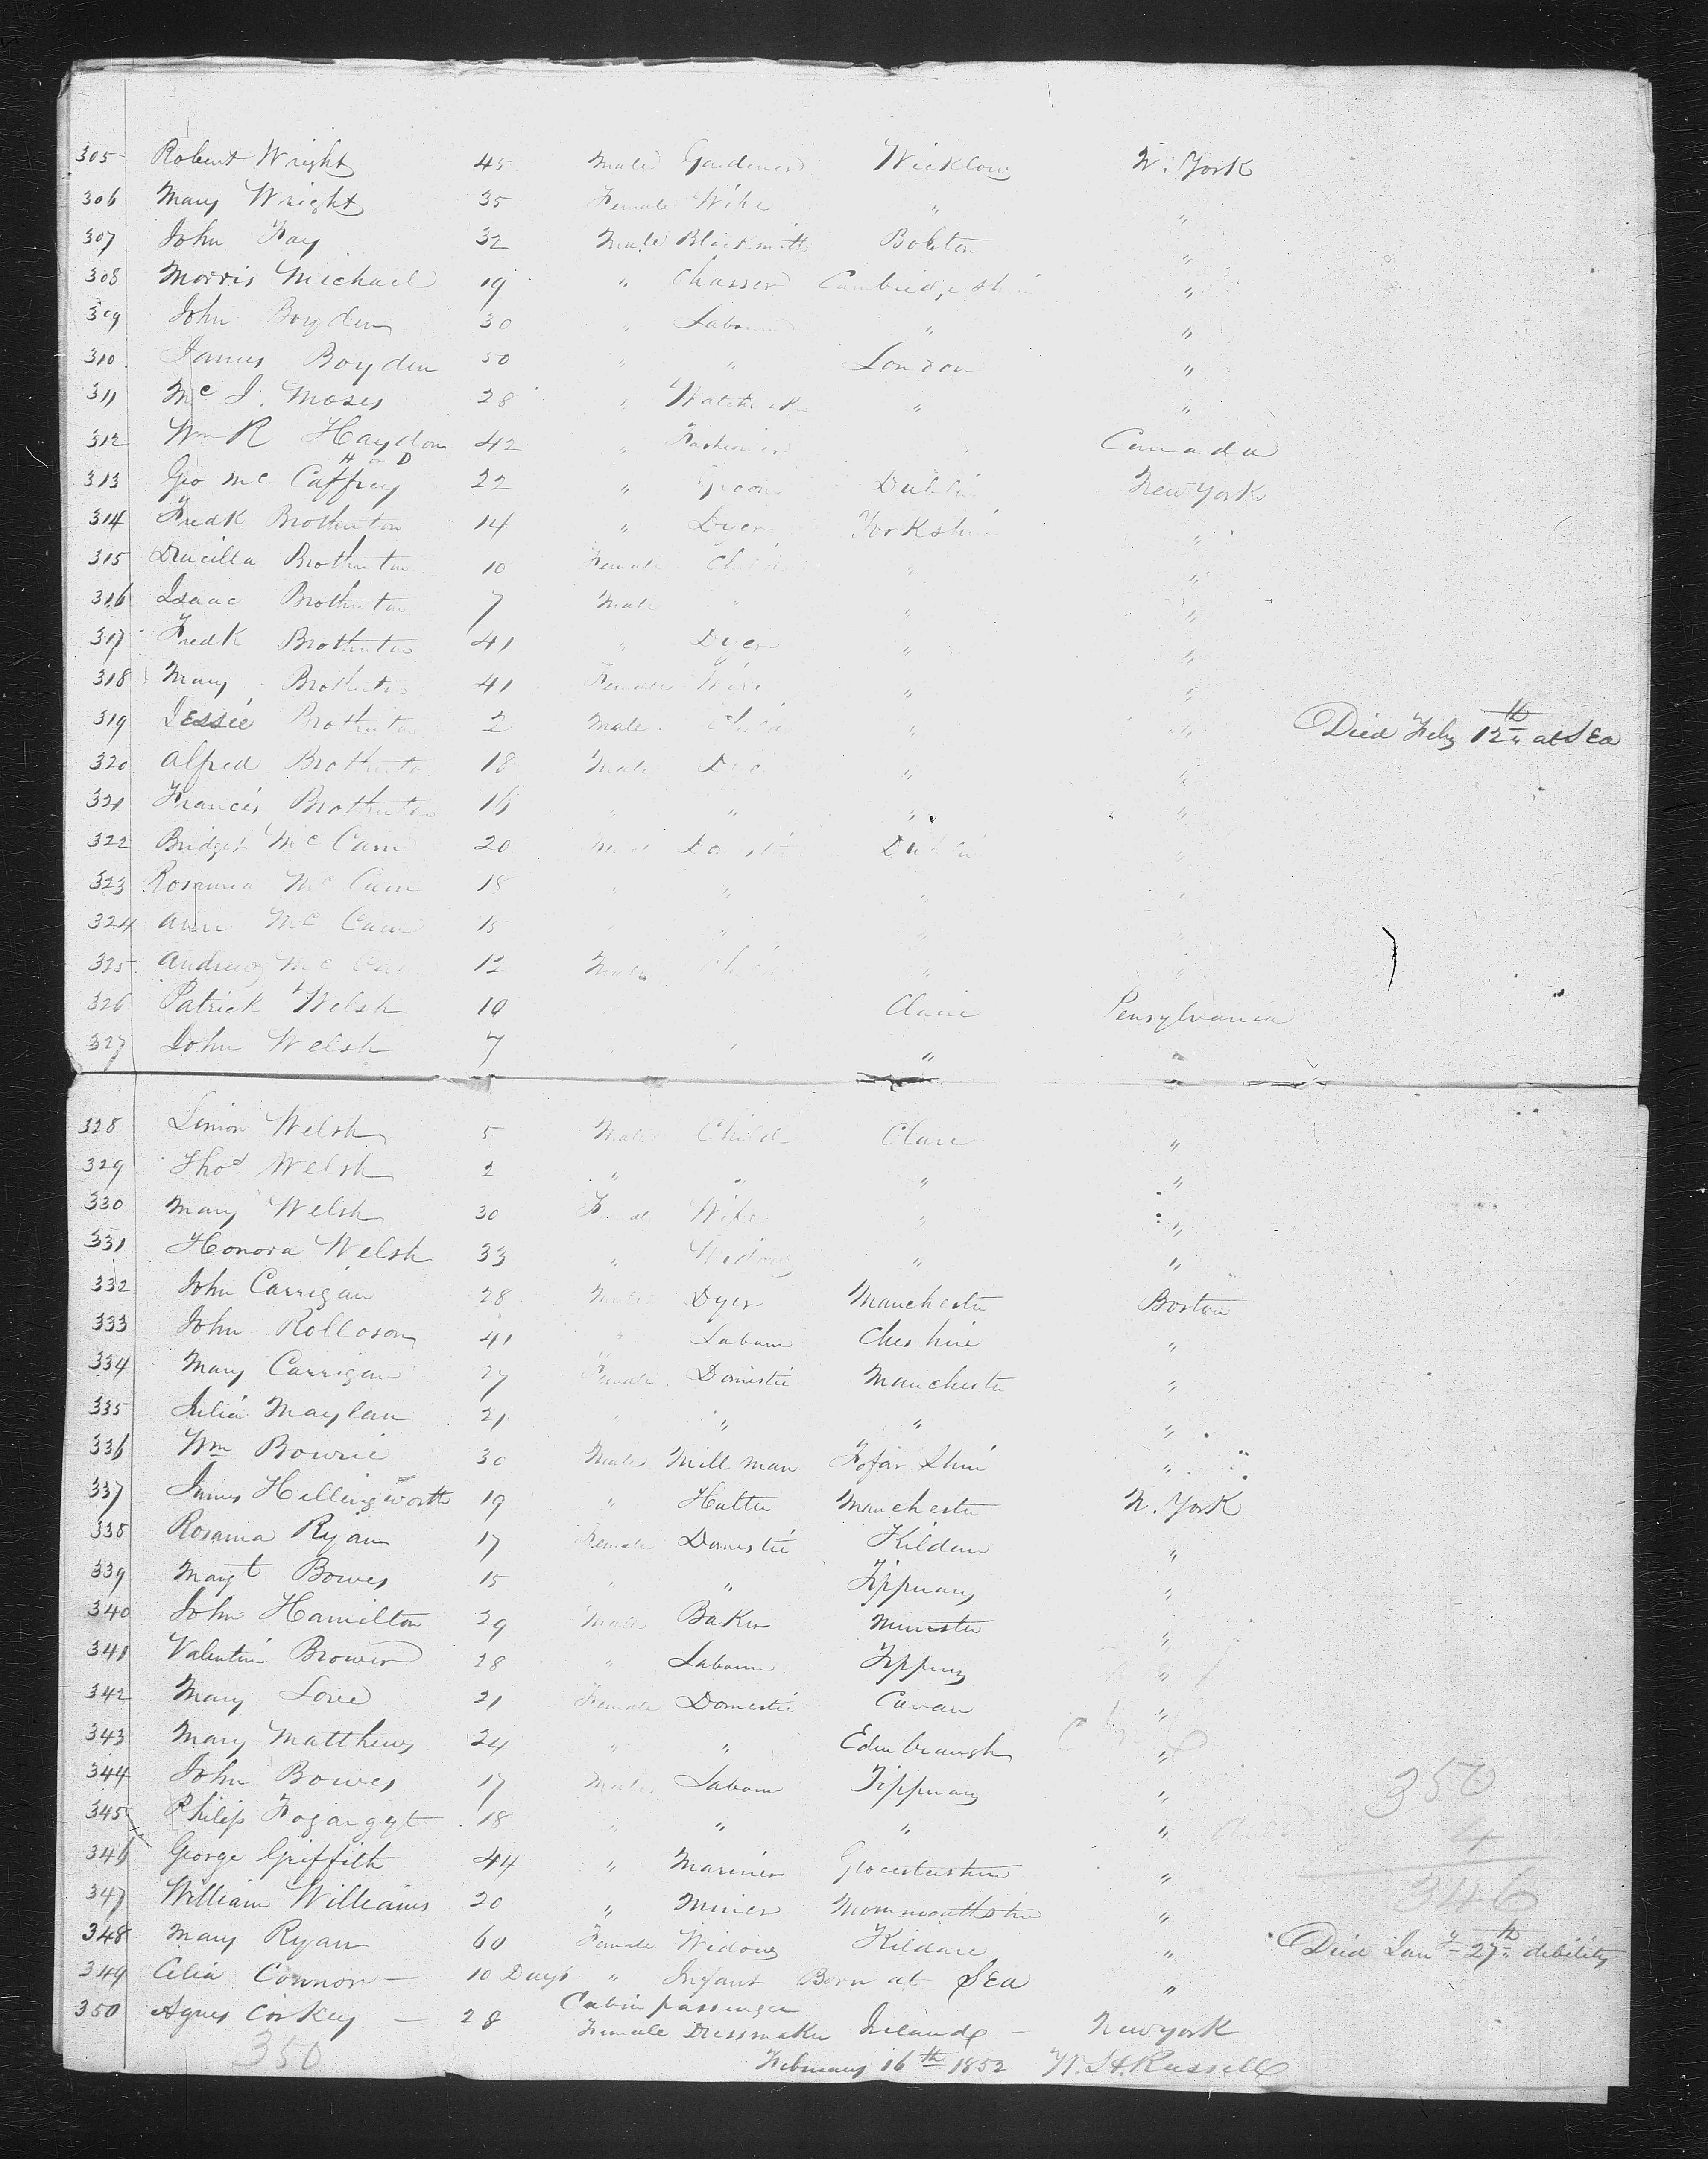 305 Robert Wright 45 Male Gardener Wicklow N. York
306 Mary Wright 35 Female Wife " "
307 John Fay 32 Male Blacksmith Bolton "
308 Morris Michael 19 " Chasser Cambridge shi "
309 John Boyden 30 " Labour " "
310 James Boyden 50 " " London "
311 Mc J. Moses 28 " " "
312 Wm R Haydon 42 " Canada
H or D
313 Geo Mc Caffrey 22 " Groom Dublin New York
314 Fredk Brotherton 14 " Dyer Yorkshire "
315 Drucilla Brotherton 10 Female Child " "
316 Isaac Brotherton 7 Male " " "
317 Fredk Brotherton 41 " Dyer " "
318 Mary Brotherton 41 Female Wife " "
319 Jessie Brotherton 2 Male Child " " Died Feby 12th at Sea
320 Alfred Brotherton 18 Male Dyer " "
321 Francis Brotherton 16 " " " "
322 Bridget Mc Cann 20 Domestic Dublin "
323 Rosanna Mc Cann 18 " " " "
324 Ann Mc Cann 15 " " " "
325 Andrew Mc Cann 12 Male Child " "
326 Patrick Welsh 10 Clare Pensylvania
327 John Welsh 7 " " " "
328 Simon Welsh 5 Male Child Clare "
329 Thos Welsh 2 " " " "
330 Mary Welsh 30 Female Wife " "
331 Honora Welsh 33 " Widow " "
332 John Carrigan 28 Male Dyer Manchester Boston
333 John Rolloson 41 " Labour Cheshire "
334 Mary Carrigan 27 Female Domestic Manchester "
335 Julia Maylan 21 " " " "
336 Wm Bowrie 30 Male Mill man Fofar Shire "
337 James Hellingworth 19 " Hatter Manchester N. York
338 Rosanna Ryan 17 Female Domestic Kildare "
339 Margt Bowes 15 " " Tipperary "
340 John Hamilton 29 Male Baker Munster "
341 Valentine Brower 28 " Labour Tipperary "
342 Mary Love 21 Female Domestic Cavan "
343 Mary Matthews 24 " " Edinbraugh "
344 John Bowes 17 Male Labour Tipperary " 350
345 Philip Fogargyt 18 " " " " 4
346 George Griffith 44 " Mariner Glocestershire " 346
347 William Williams 20 " Miner Mommouthshire "
348 Mary Ryan 60 Female Widow Kildare " Died Jany 27th debility
349 Celia Connor — 10 Days " Infant Born at Sea "
350 Agnes Corkey — 28 Cabin passenger
Female Dressmaker Ireland — New york
350
February 16th 1852 W. H. Russell